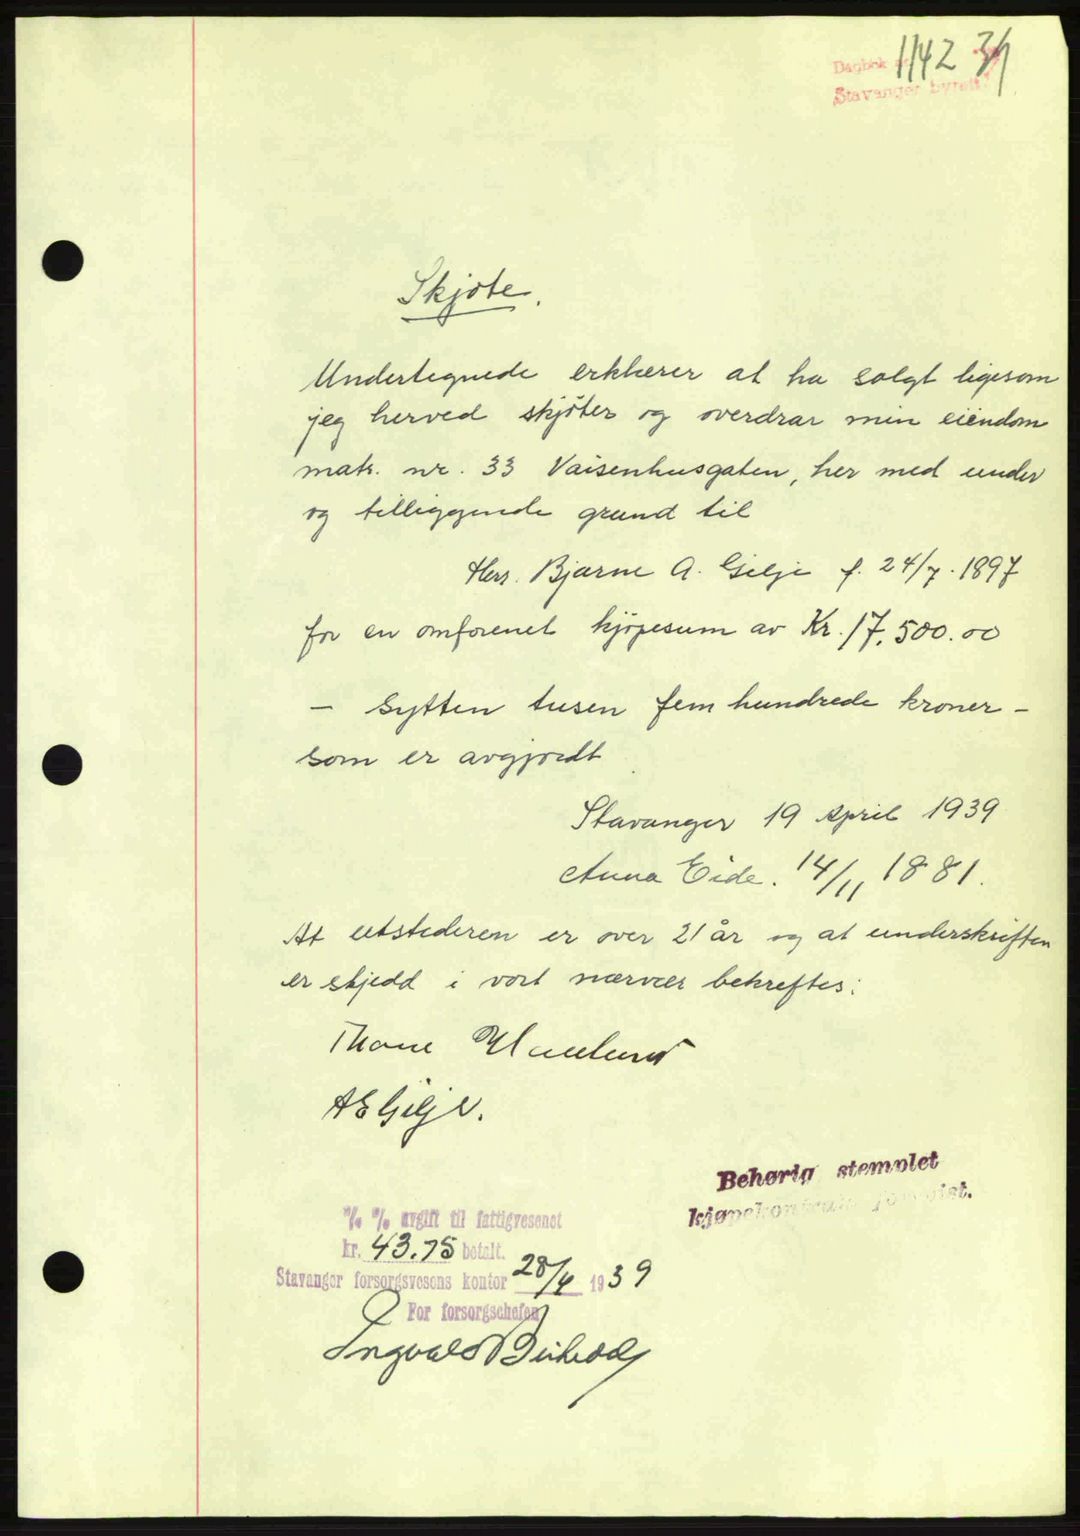 Dagbok nr. 1142 39
Stavanger byrett
Skjøte.
Undertegnede erklærer at ha solgt ligesom
jeg herved skjøter og overdrar min eiendom
matr. nr. 33 Vaisenhusgaten, her med under
og tilliggende grund til
Herr. Bjarne A. Gilje f. 24/7. 1897
for en omforenet kjøpesum av Kr. 17,500.00
– Sytten tusen fem hundrede kroner –
som er avgjordt
Stavanger 19 April 1939
Anna Eide. 14/11 1881.
At utstederen er over 21 år og at underskriften
er skjedd i vort nærvær bekreftes:
A E Gilje.
Behørig stemplet
kjøpekontrakt forevist.
avgift til fattigvesenet
kr. 43.75 betalt.
Stavanger forsorgsvesens kontor 28/4 1939
For forsorgschefen
Ingvald